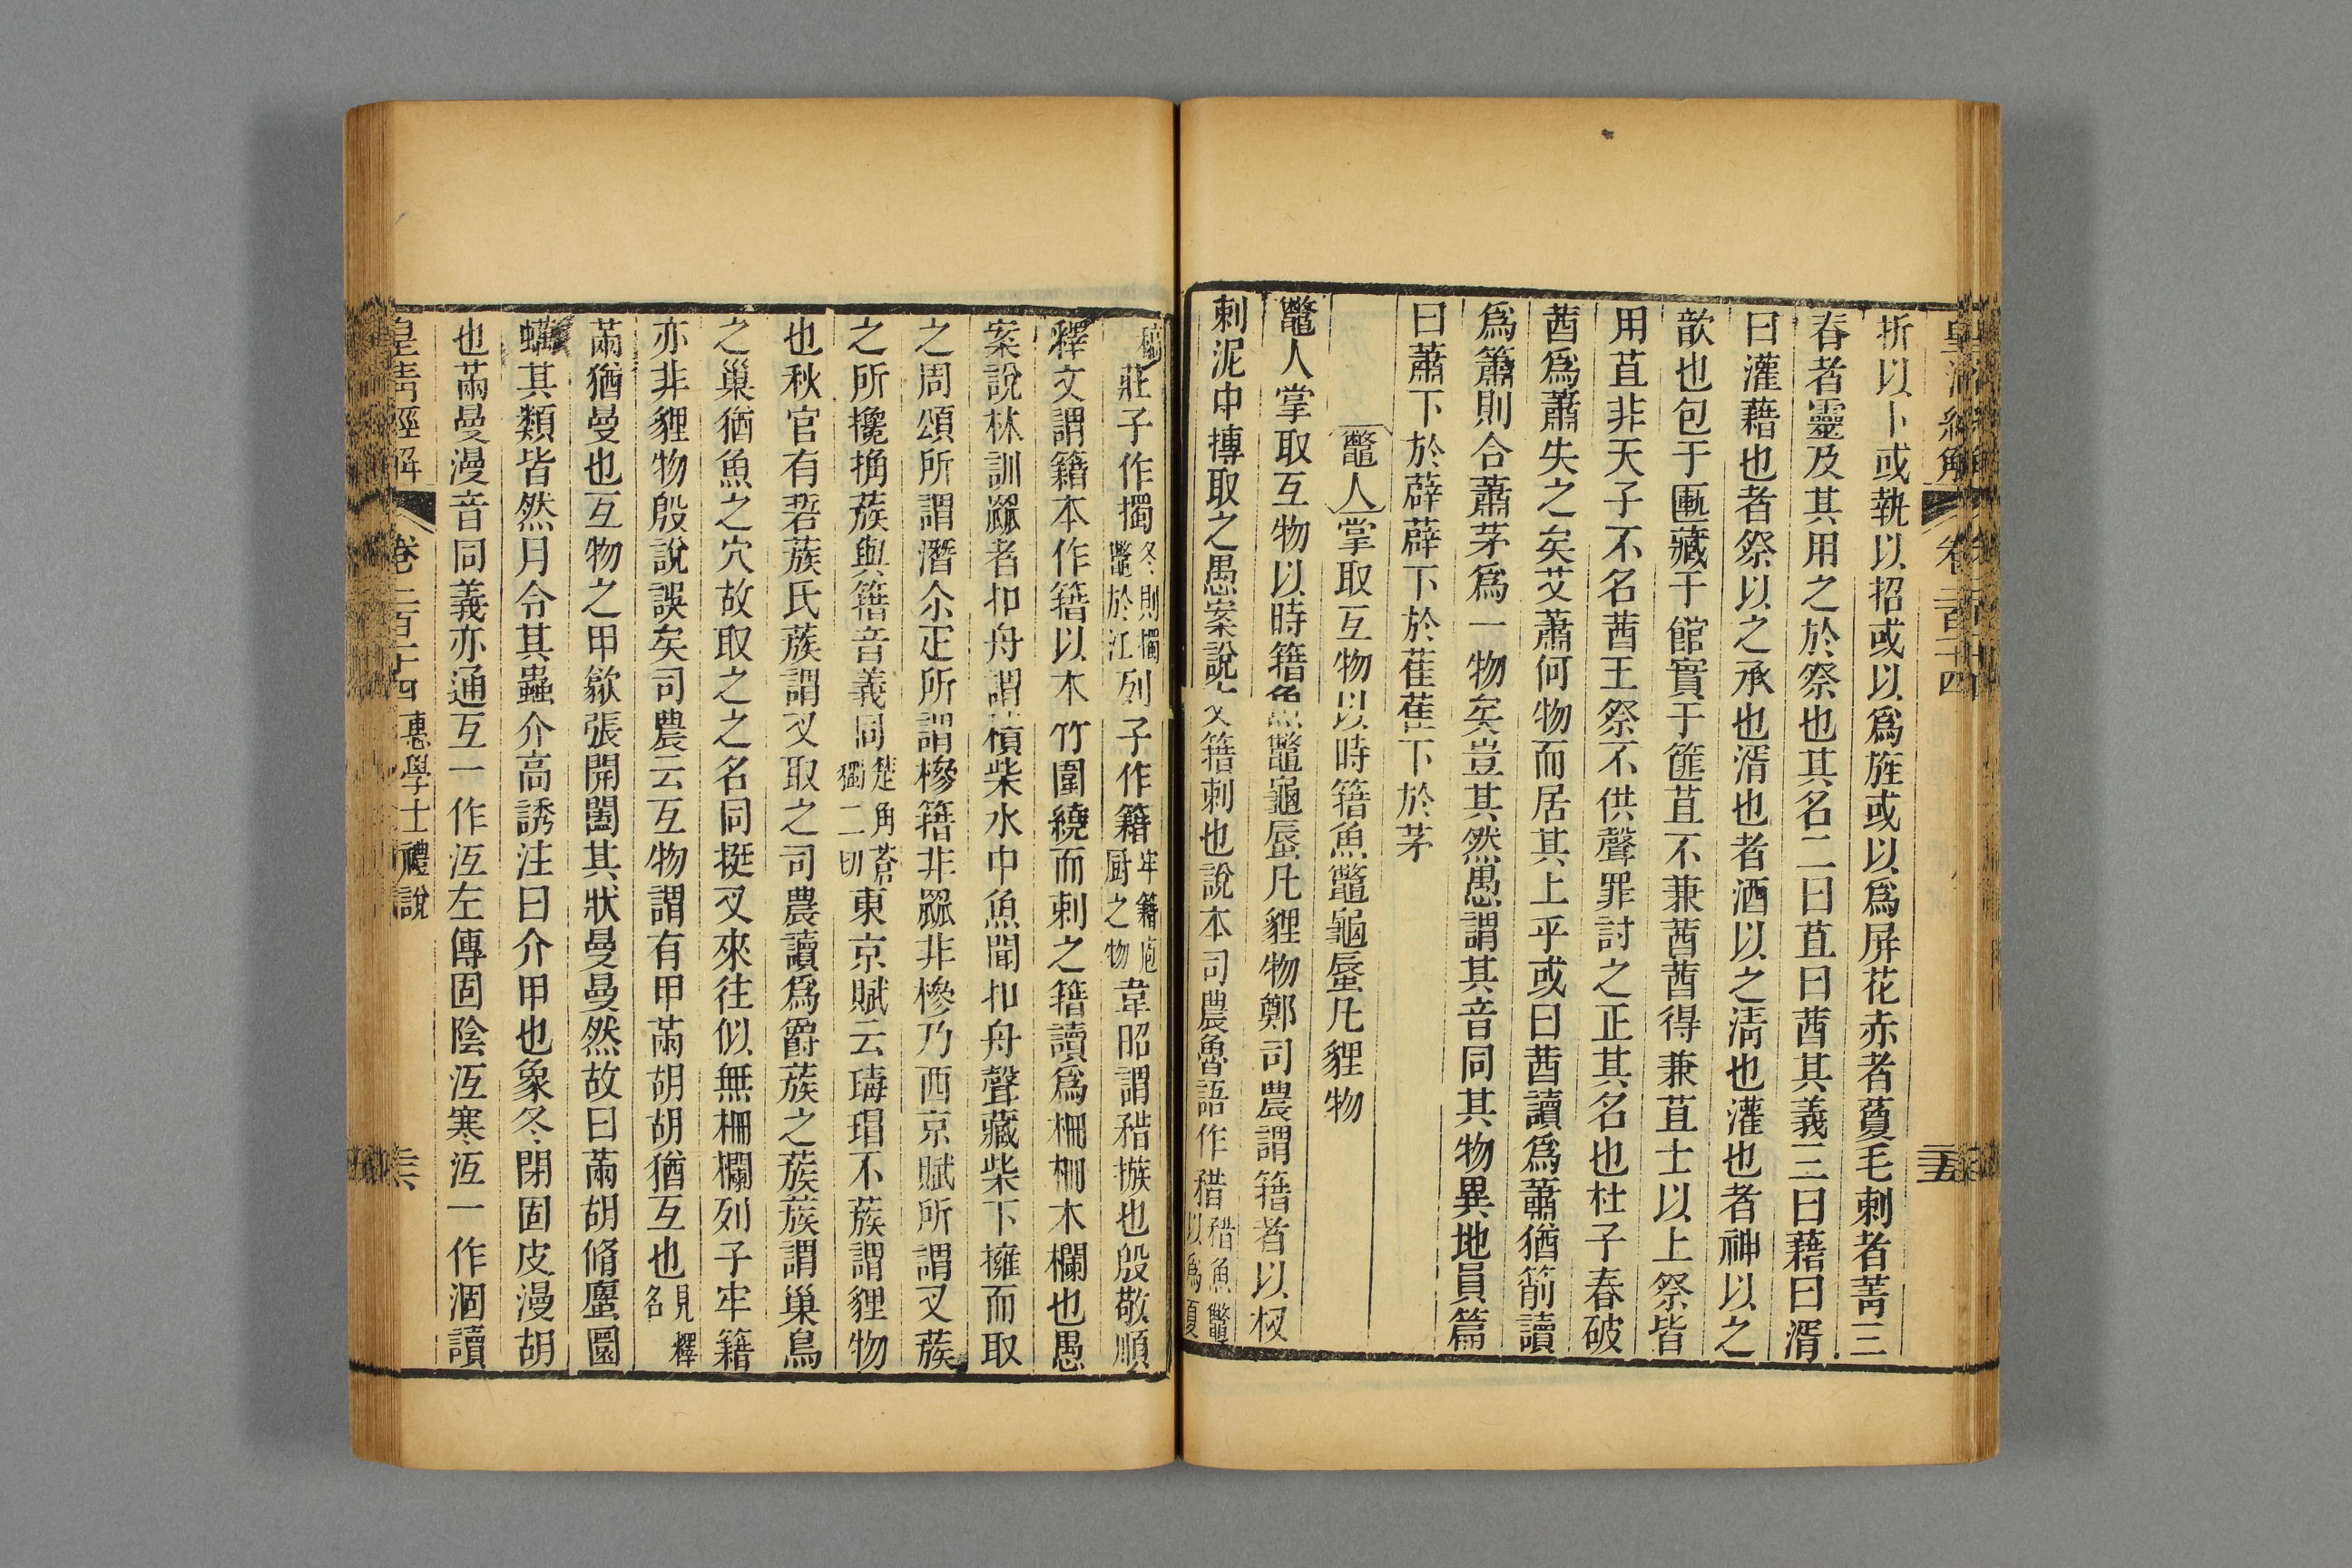 皇清經解 卷二百十四 二五
折以卜或執以招或以爲旌或以爲屏花赤者蔓毛刺者菁三
春者靈及其用之於祭也其名二曰苴曰茜其義三曰藉曰湑
曰灌藉也者祭以之承也湑也者酒以之淸也灌也者神以之
歆也包于匭藏于館實于篚苴不兼茜茜得兼苴士以上祭皆
用苴非天子不名茜王祭不供聲罪討之正其名也杜子春破
茜爲蕭失之矣艾蕭何物而居其上乎或曰茜讀爲蕭猶箾讀
爲簫則合蕭茅爲一物矣豈其然愚謂其音同其物異地員篇
曰蕭下於薜薜下於萑萑下於茅
鼈人掌取互物以時籍魚鼈龜蜃凡貍物
鼈人掌取互物以時籍魚鼈龜蜃凡貍物鄭司農謂籍者以杈
刺泥中摶取之愚案說文籍刺也說本司農魯語作矠矠魚鼈以爲夏
槁莊子作擉冬則擉鼈於江列子作籍牢籍庖厨之物韋昭謂矠摭也殷敬順
釋文謂籍本作簎以木竹圍繞而刺之簎讀爲柵柵木欄也愚
案說林訓罧者扣舟謂積柴水中魚聞扣舟聲藏柴下擁而取
之周頌所謂潛尒疋所謂槮籍非罧非槮乃西京賦所謂叉蔟
之所攙捔蔟與簎音義同楚角蒼獨二切東京賦云瑇瑁不蔟謂貍物
也秋官有硩蔟氏蔟謂叉取之司農讀爲爵蔟之蔟蔟謂巢鳥
之巢猶魚之穴故取之之名同挺叉來往似無柵欄列子牢籍
亦非貍物殷說誤矣司農云互物謂有甲㒼胡胡猶互也見釋名
㒼猶曼也互物之甲歙張開闔其狀曼曼然故曰㒼胡脩廬圜
蠇其類皆然月令其蟲介高誘注曰介甲也象冬閉固皮漫胡
也㒼曼漫音同義亦通互一作沍左傳固陰沍寒沍一作涸讀
皇淸經解 卷二百十四 惠學士禮說 三六